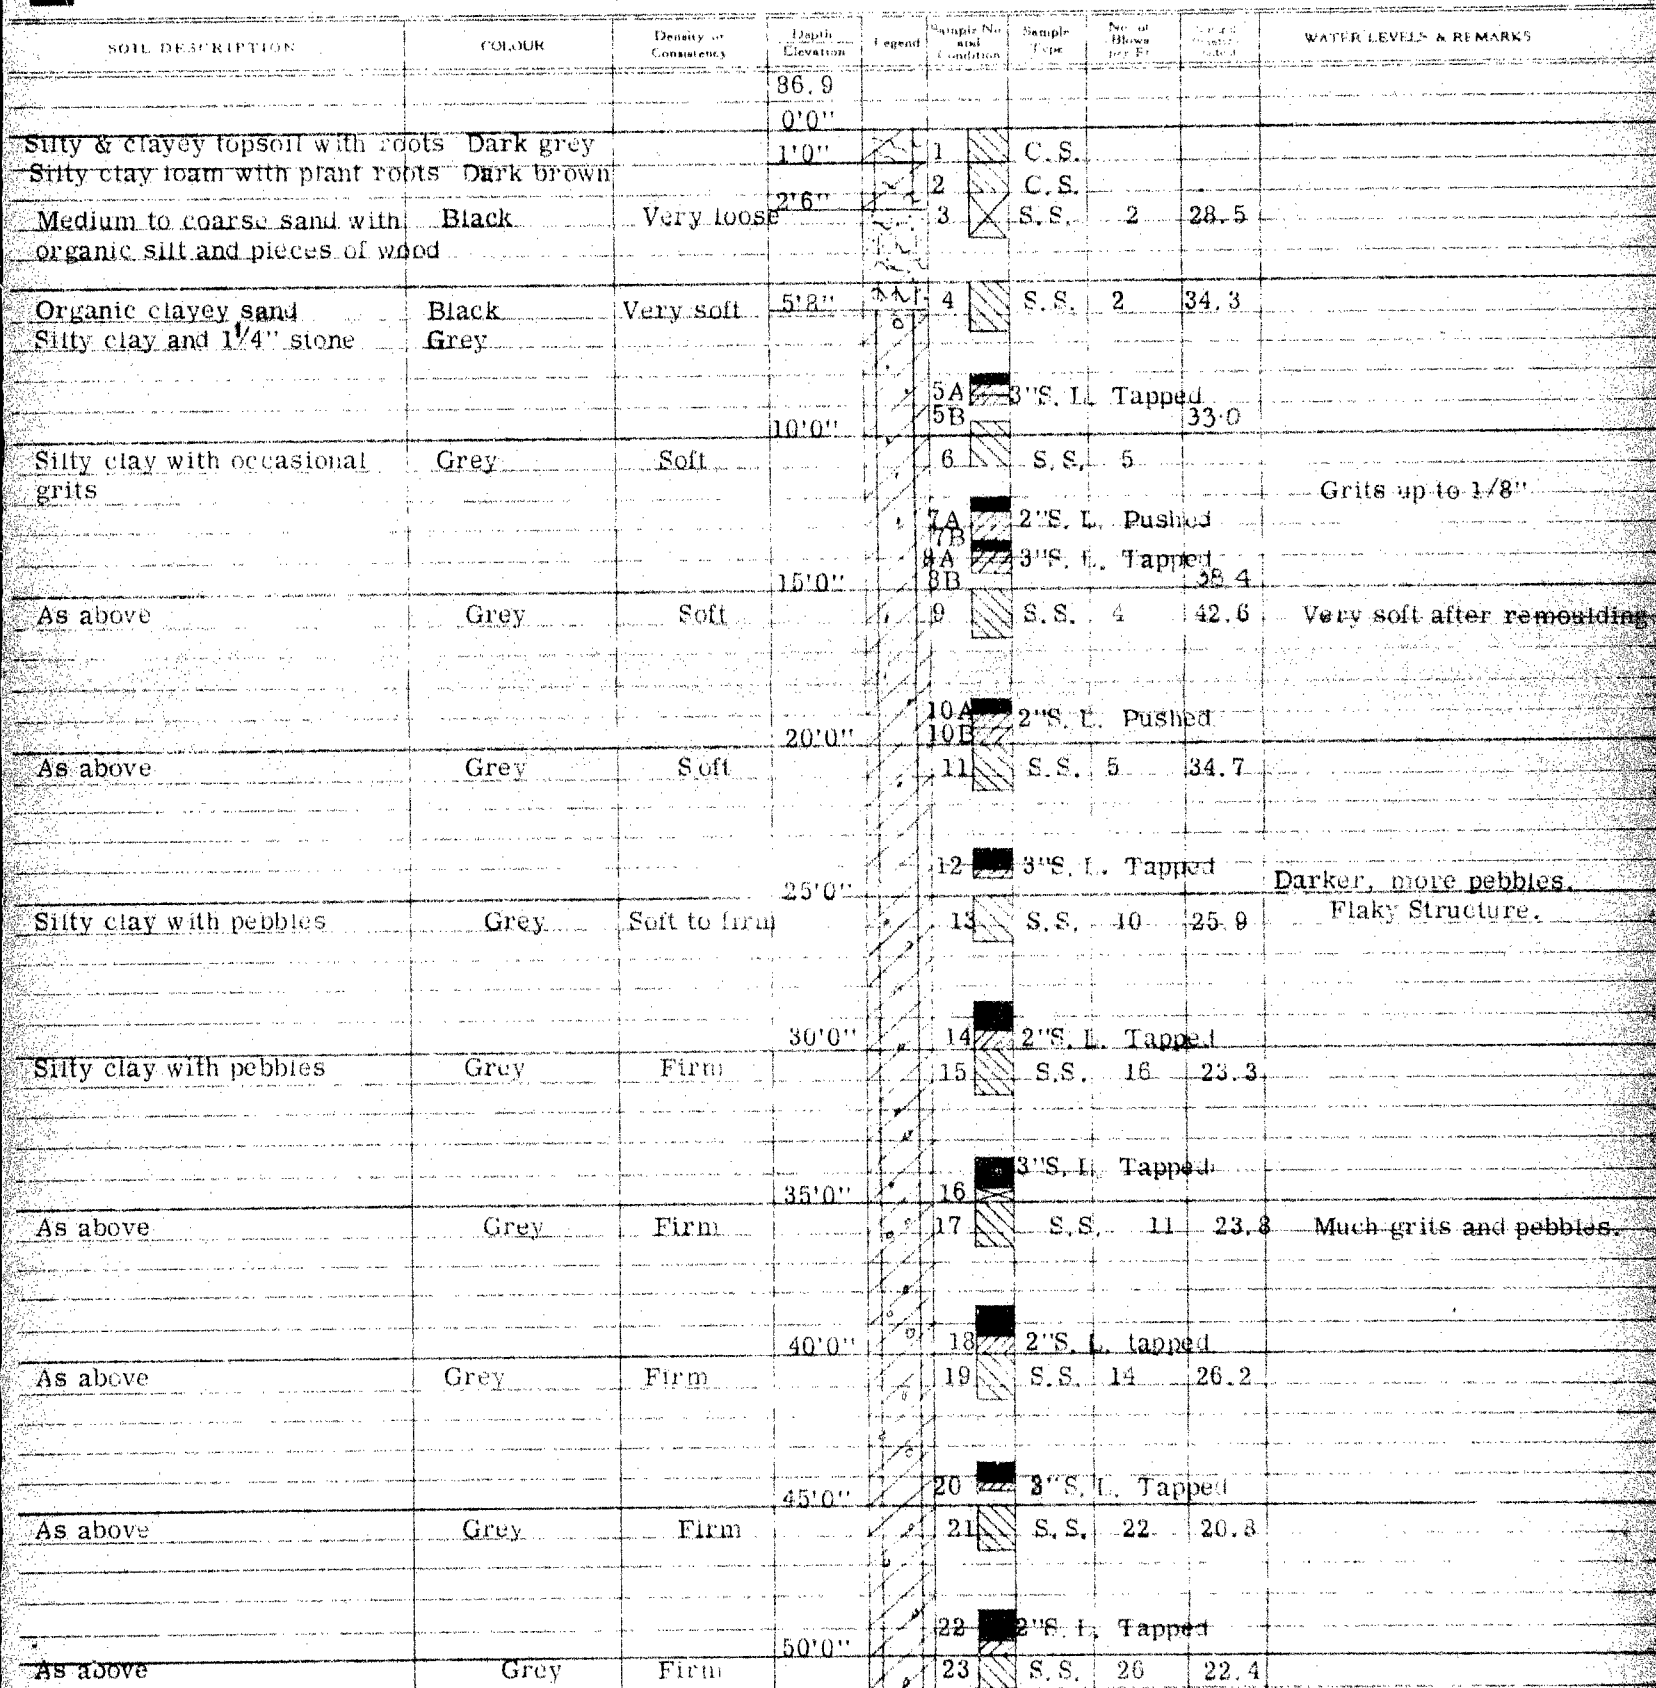 SOIL DESCRIPTION COLOUR Density or Consistency Depth Elevation Legend Sample No. and Condition Sample Type No. of Blows per Ft. WATER LEVELS & REMARKS
86.9
0'0"
Silty & clayey topsoil with roots Dark grey 1'0" 1 C.S.
Silty clay loam with plant roots Dark brown 2 C.S.
2'6"
Medium to coarse sand with Black Very loose 3 S.S. 2 28.5
organic silt and pieces of wood
Organic clayey sand Black Very soft 5'8" 4 S.S. 2 34.3
Silty clay and 1 1/4" stone Grey
5A 3"S.L. Tapped
5B 33.0
10'0"
Silty clay with occasional Grey Soft 6 S.S. 5
grits Grits up to 1/8"
7A 2"S.L. Pushed
7B
8A 3"S.L. Tapped
15'0" 8B 38.4
As above Grey Soft 9 S.S. 4 42.6 Very soft after remoulding
10A 2"S.L. Pushed
20'0" 10B
As above Grey Soft 11 S.S. 5 34.7
12 3"S.L. Tapped
25'0" Darker, more pebbles.
Silty clay with pebbles Grey Soft to firm 13 S.S. 10 25.9 Flaky Structure.
30'0" 14 2"S.L. Tapped
Silty clay with pebbles Grey Firm 15 S.S. 16 23.3
3"S.L. Tapped
35'0" 16
As above Grey Firm 17 S.S. 11 23.8 Much grits and pebbles.
40'0" 18 2"S.L. tapped
As above Grey Firm 19 S.S. 14 26.2
45'0" 20 3"S.L. Tapped
As above Grey Firm 21 S.S. 22 20.8
22 2"S.L. Tapped
50'0"
As above Grey Firm 23 S.S. 26 22.4